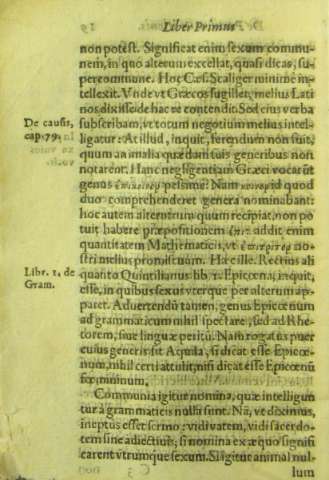 Liber Primus
non potest. Significat enim sexum commu-
nem, in quo alterum excellat, quasi dicas, su-
per commune. Hoc Cæs. Scaliger minime in-
tellexit. Vnde vt Græcos sugillet, melius Lati
nos dixisse de hac re contendit. Sed eius verba
De causis,
subscribam, vt totum negotium melius intel-
cap. 79.
ligatur: At illud, inquit, ferendum non fuit,
quum animalia quædam suis generibus non
notarent. Hanc negligentiam Græci vocarũt
genus ἐπίκοινον pessime: Nam κοινὸν id quod
duo comprehenderet genera nominabant:
hoc autem alterutrum quum recipiat, non po
tuit habere præpositionem ἐπὶ: addit enim
quantitatem Mathematicis, vt ἐπίτριτον no-
stri melius promiscuum. Hæc ille. Rectius ali
Libr. 1. de
quanto Quintilianus lib. 1. Epicœna, inquit,
Gram.
esse, in quibus sexus vterque per alterum ap-
paret. Aduertendũ tamen, genus Epicœnum
ad grammaticum nihil spectare, sed ad Rhe-
torem, siue linguæ peritũ. Nam rogatus puer
cuius generis sit Aquila, si dicat esse Epicœ-
num, nihil certi attulit, nisi dicat esse Epicœnũ
fœmininum.
Communia igitur nomina, quæ intelligun
tur à grammaticis nulla sunt. Nã, vt diximus,
ineptus esset sermo: vidi vatem, vidi sacerdo-
tem sine adiectiuis; si nomina ex æquo signifi
carent vtrumque sexum. Si igitur animal nul-
lum